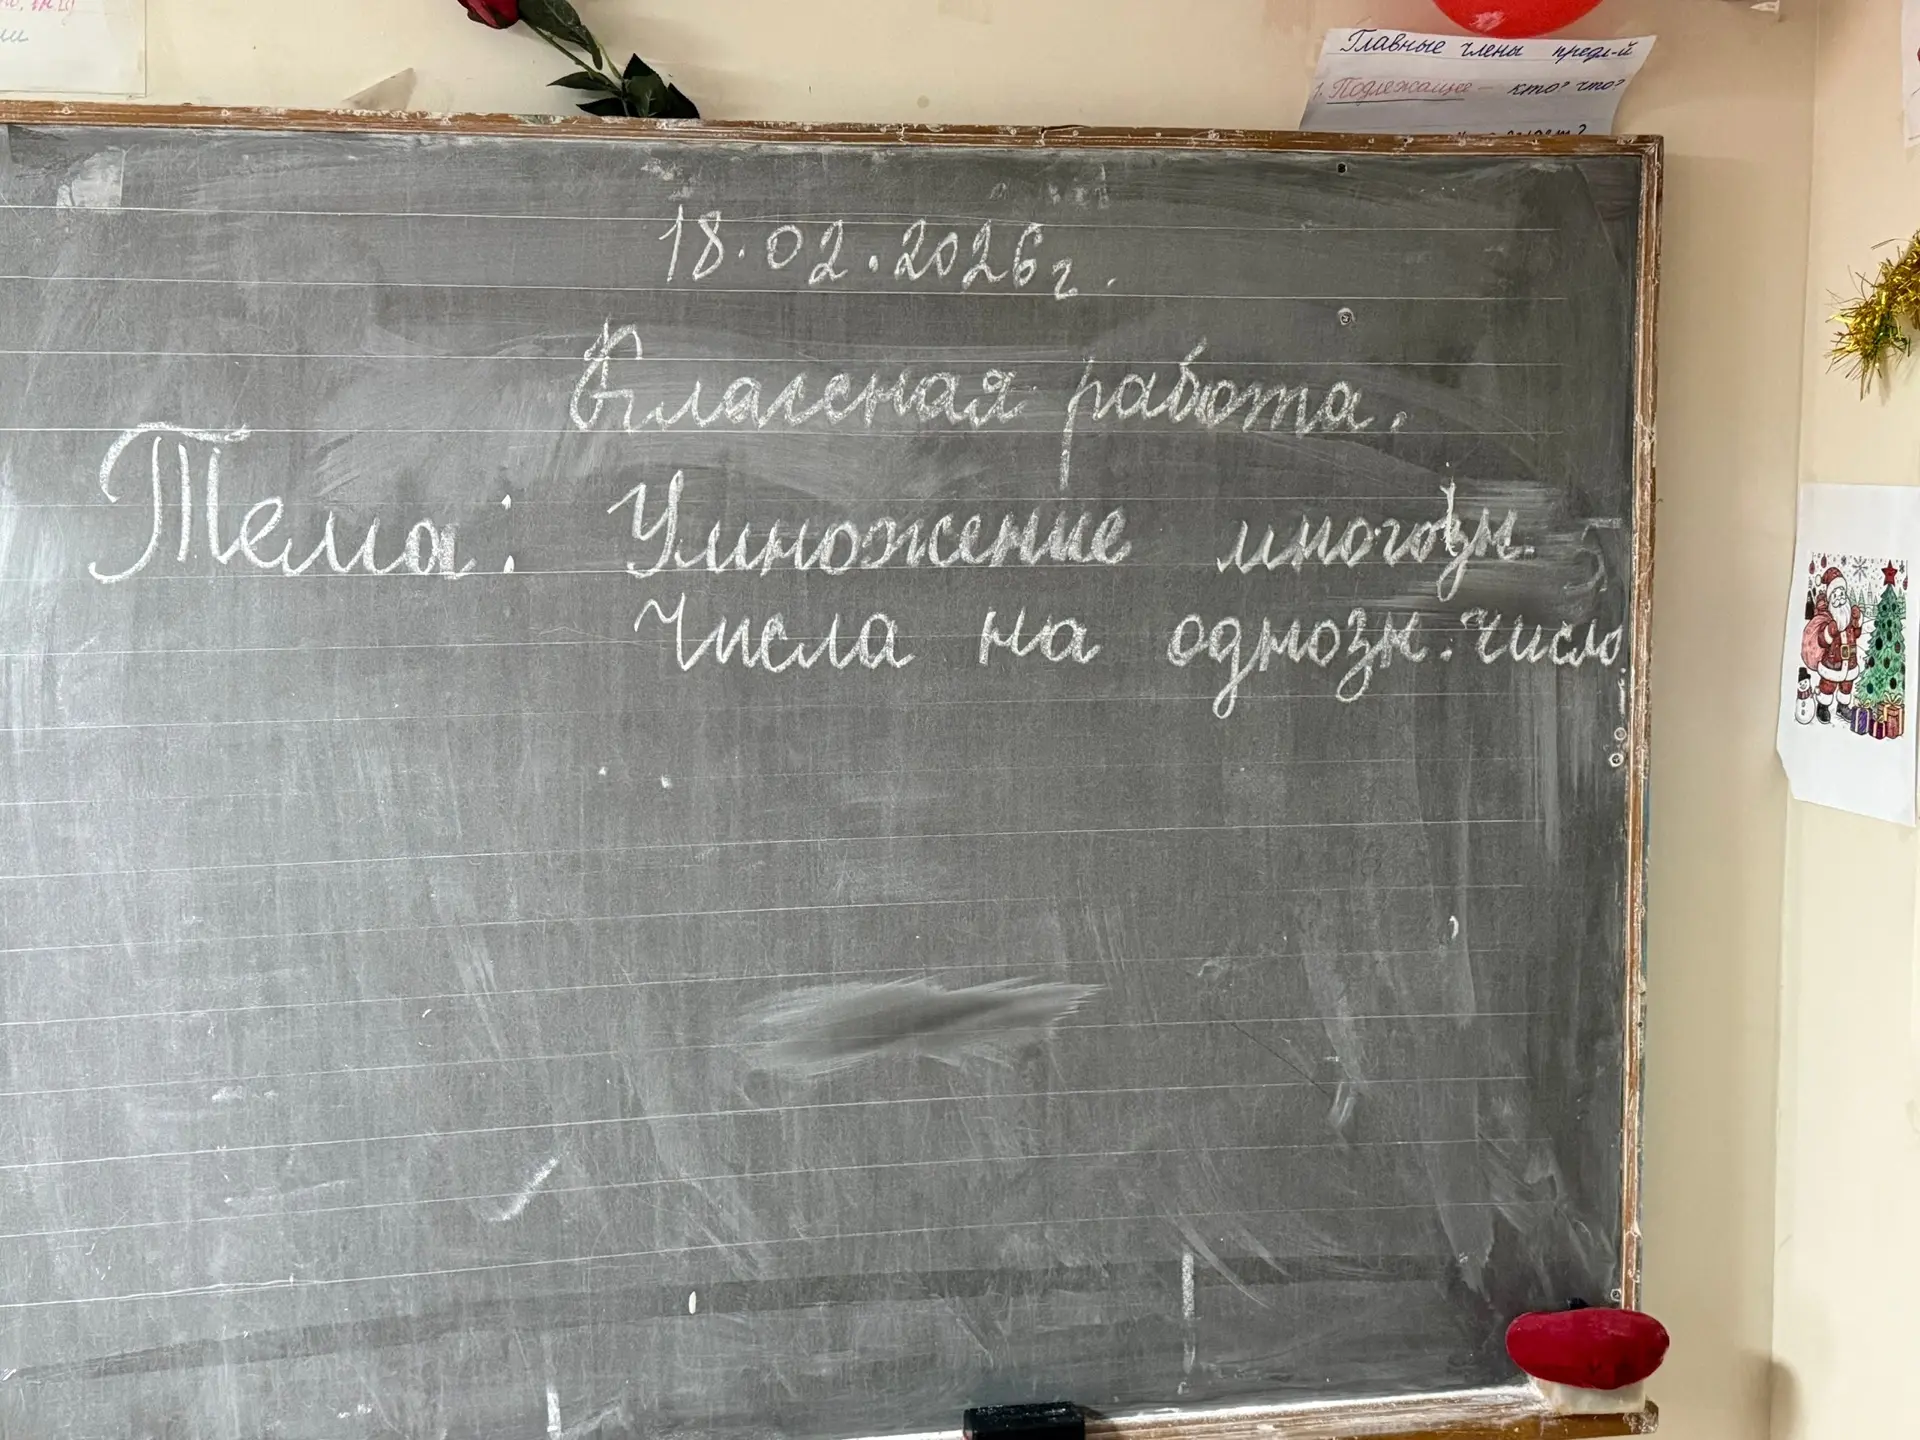 Главные члены предл-й
1. Подлежащее – кто? что?
18.02.2026г.
Классная работа.
Тема: Умножение многозн.
числа на однозн. число.